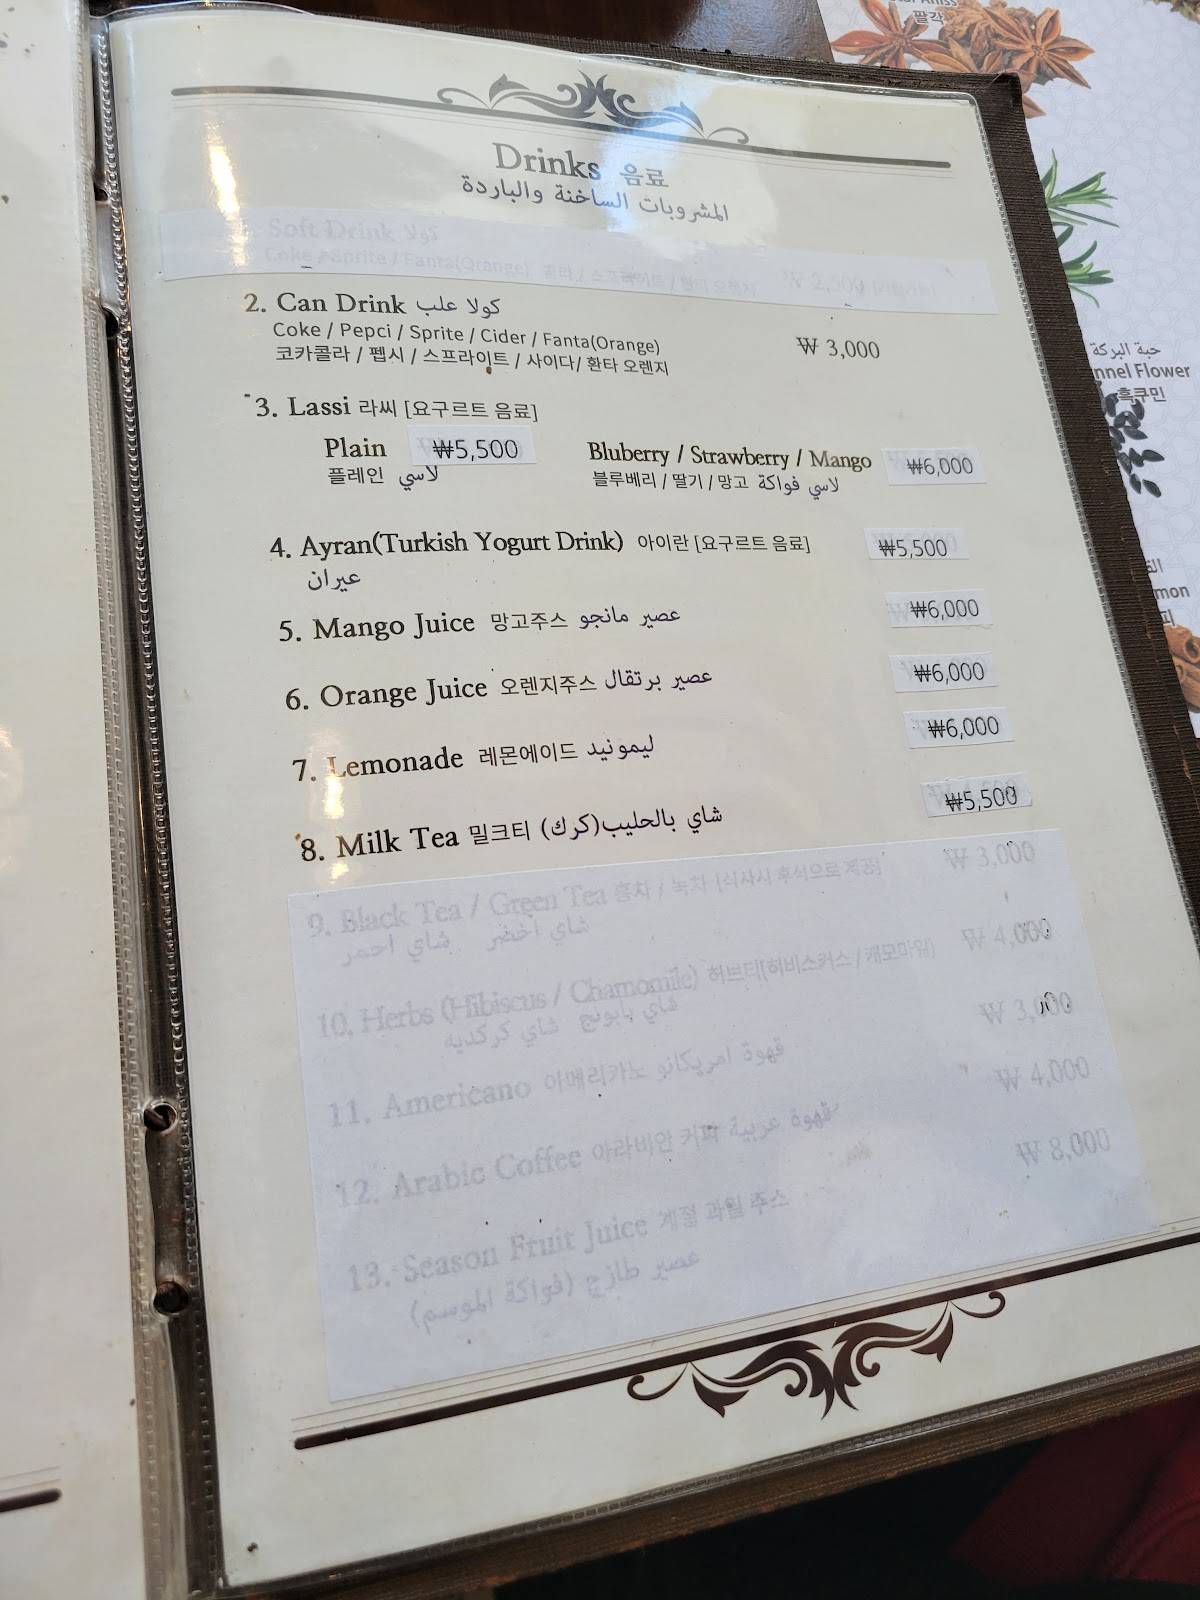 Drinks 음료
المشروبات الساخنة والباردة
Soft Drink كولا
Coke / Sprite / Fanta(Orange) 콜라 / 스프라이트 / 환타 오렌지 ₩ 2,500
2. Can Drink كولا علب
Coke / Pepci / Sprite / Cider / Fanta(Orange)
코카콜라 / 펩시 / 스프라이트 / 사이다/ 환타 오렌지
₩ 3,000
3. Lassi 라씨 [요구르트 음료]
Plain ₩5,500
플레인 لاسي
Bluberry / Strawberry / Mango ₩6,000
블루베리 / 딸기 / 망고 لاسي فواكة
4. Ayran(Turkish Yogurt Drink) 아이란 [요구르트 음료] ₩5,500
عيران
5. Mango Juice 망고주스 عصير مانجو ₩6,000
6. Orange Juice 오렌지주스 عصير برتقال ₩6,000
7. Lemonade 레몬에이드 ليمونيد ₩6,000
8. Milk Tea 밀크티 شاي بالحليب(كرك) ₩5,500
9. Black Tea / Green Tea 홍차 / 녹차 [식사시 후식으로 제공] ₩ 3,000
شاي احمر شاي اخضر
10. Herbs (Hibiscus / Chamomile) 허브티[히비스커스 / 캐모마일] ₩ 4,000
شاي بابونج شاي كركديه
11. Americano 아메리카노 قهوة امريكانو ₩ 3,000
12. Arabic Coffee 아라비안 커피 قهوة عربية ₩ 4,000
13. Season Fruit Juice 계절 과일 주스 ₩ 8,000
عصير طازج (فواكة الموسم)
팔각
حبة البركة
nnel Flower
흑쿠민
الق
mon
피